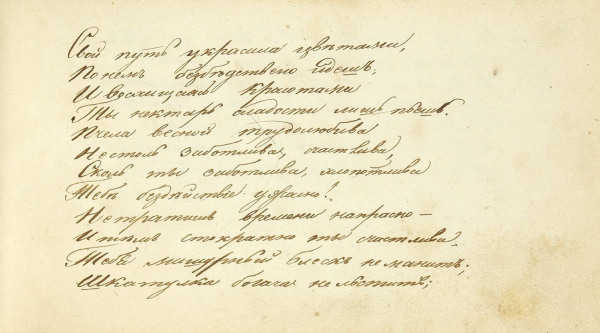 Свой путь украсила цвѣтами,
По немъ безбѣдственно идешь;
И восхищаясь красотами
Ты нектаръ сладости лишь пьешь.
Пчела весной трудолюбива
Не столь заботлива, счастлива,
Сколь ты заботлива, хлопотлива
Тебѣ бездѣйствіе ужасно!
Не тратишь времени напрасно —
И тѣмъ стократно ты счастлива.
Тебя мишурный блескъ не манитъ;
Шкатулка богача не льститъ;